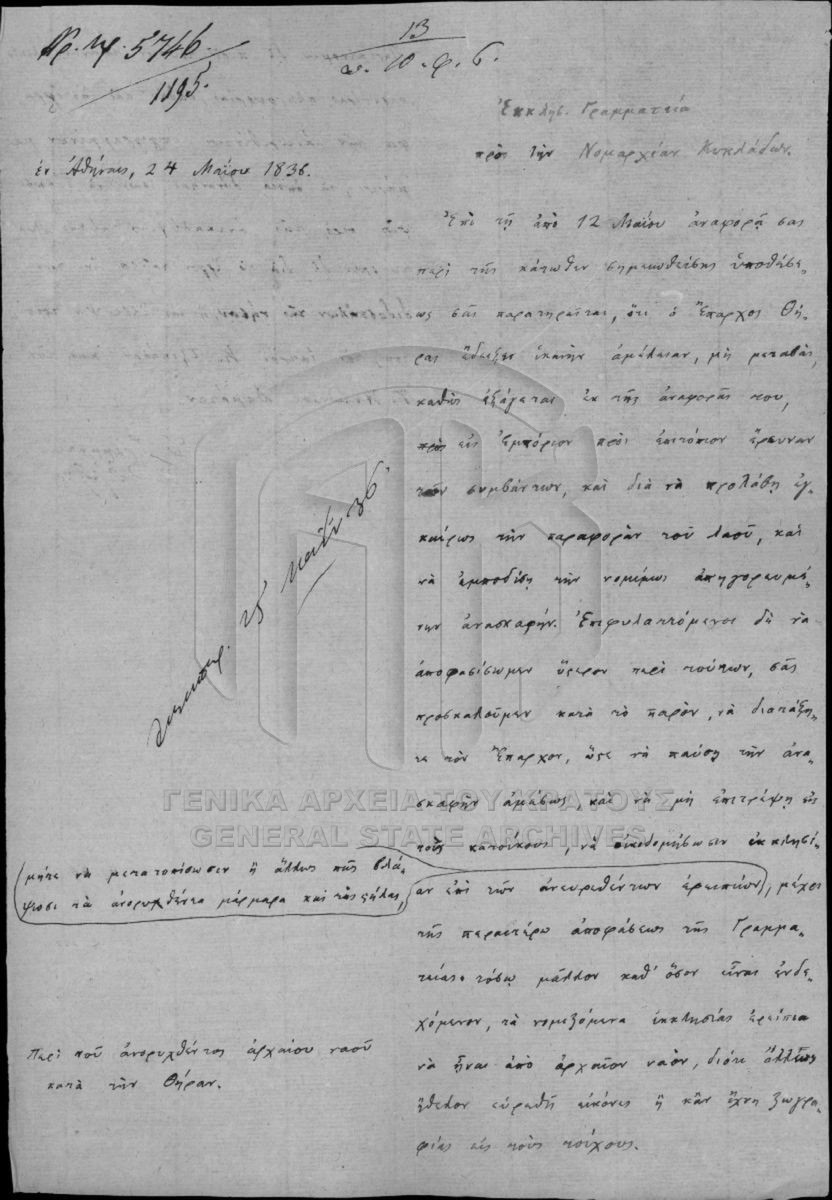 Αρ. πρ. 5746.
1195.
13
10. φ. 6.
Ἐκκλησ. Γραμματεία
πρὸς τὴν Νομαρχίαν Κυκλάδων.
ἐν Ἀθήναις, 24 Μαΐου 1836.
Ἐπὶ τῇ ἀπὸ 12 Μαΐου ἀναφορᾷ σας
περὶ τῆς κάτωθεν σημειωθείσης ὑποθέσε-
ως σᾶς παρατηρεῖται, ὅτι ὁ Ἔπαρχος Θή-
ρας ἔδειξεν ἱκανὴν ἀμέλειαν, μὴ μεταβὰς,
καθὼς ἐξάγεται ἐκ τῆς ἀναφορᾶς του,
πρὸς εἰς Ἐμπόριον πρὸς ἐπιτόπιον ἔρευναν
τῶν συμβάντων, καὶ διὰ νὰ προλάβῃ ἐγ-
καίρως τὴν παραφορὰν τοῦ λαοῦ, καὶ
νὰ ἐμποδίσῃ τὴν νομίμως ἀπηγορευμέ-
νην ἀνασκαφήν. Ἐπιφυλαττόμενοι δὲ νὰ
ἀποφασίσωμεν ὕστερον περὶ τούτων, σᾶς
προσκαλοῦμεν κατὰ τὸ παρὸν, νὰ διατάξη-
τε τὸν Ἔπαρχον, ὥστε νὰ παύσῃ τὴν ἀνα-
σκαφὴν ἀμέσως, καὶ νὰ μὴ ἐπιτρέψῃ εἰς
τοὺς κατοίκους, νὰ οἰκοδομήσωσιν ἐκκλησί-
αν ἐπὶ τῶν ἀνευρεθέντων ἐρειπίων, μέχρι
τῆς περαιτέρω ἀποφάσεως τῆς Γραμμα-
τείας· τόσῳ μᾶλλον καθ' ὅσον εἶναι ἐνδε-
χόμενον, τὰ νομιζόμενα ἐκκλησίας ἐρείπια
νὰ ἦναι ἀπὸ ἀρχαῖον ναὸν, διότι ἄλλως
ἤθελον εὑρεθῆ εἰκόνες ἢ κἂν ἴχνη ζωγρα-
φίας εἰς τοὺς τοίχους.
25 Μαΐου 36.
μήτε νὰ μετατοπίσωσιν ἢ ἄλλως πῶς βλά-
ψωσι τὰ ἀνορυχθέντα μάρμαρα καὶ τὰς στήλας,
Περὶ τοῦ ἀνορυχθέντος ἀρχαίου ναοῦ
κατὰ τὴν Θήραν.
ΓΕΝΙΚΑ ΑΡΧΕΙΑ ΤΟΥ ΚΡΑΤΟΥΣ
GENERAL STATE ARCHIVES